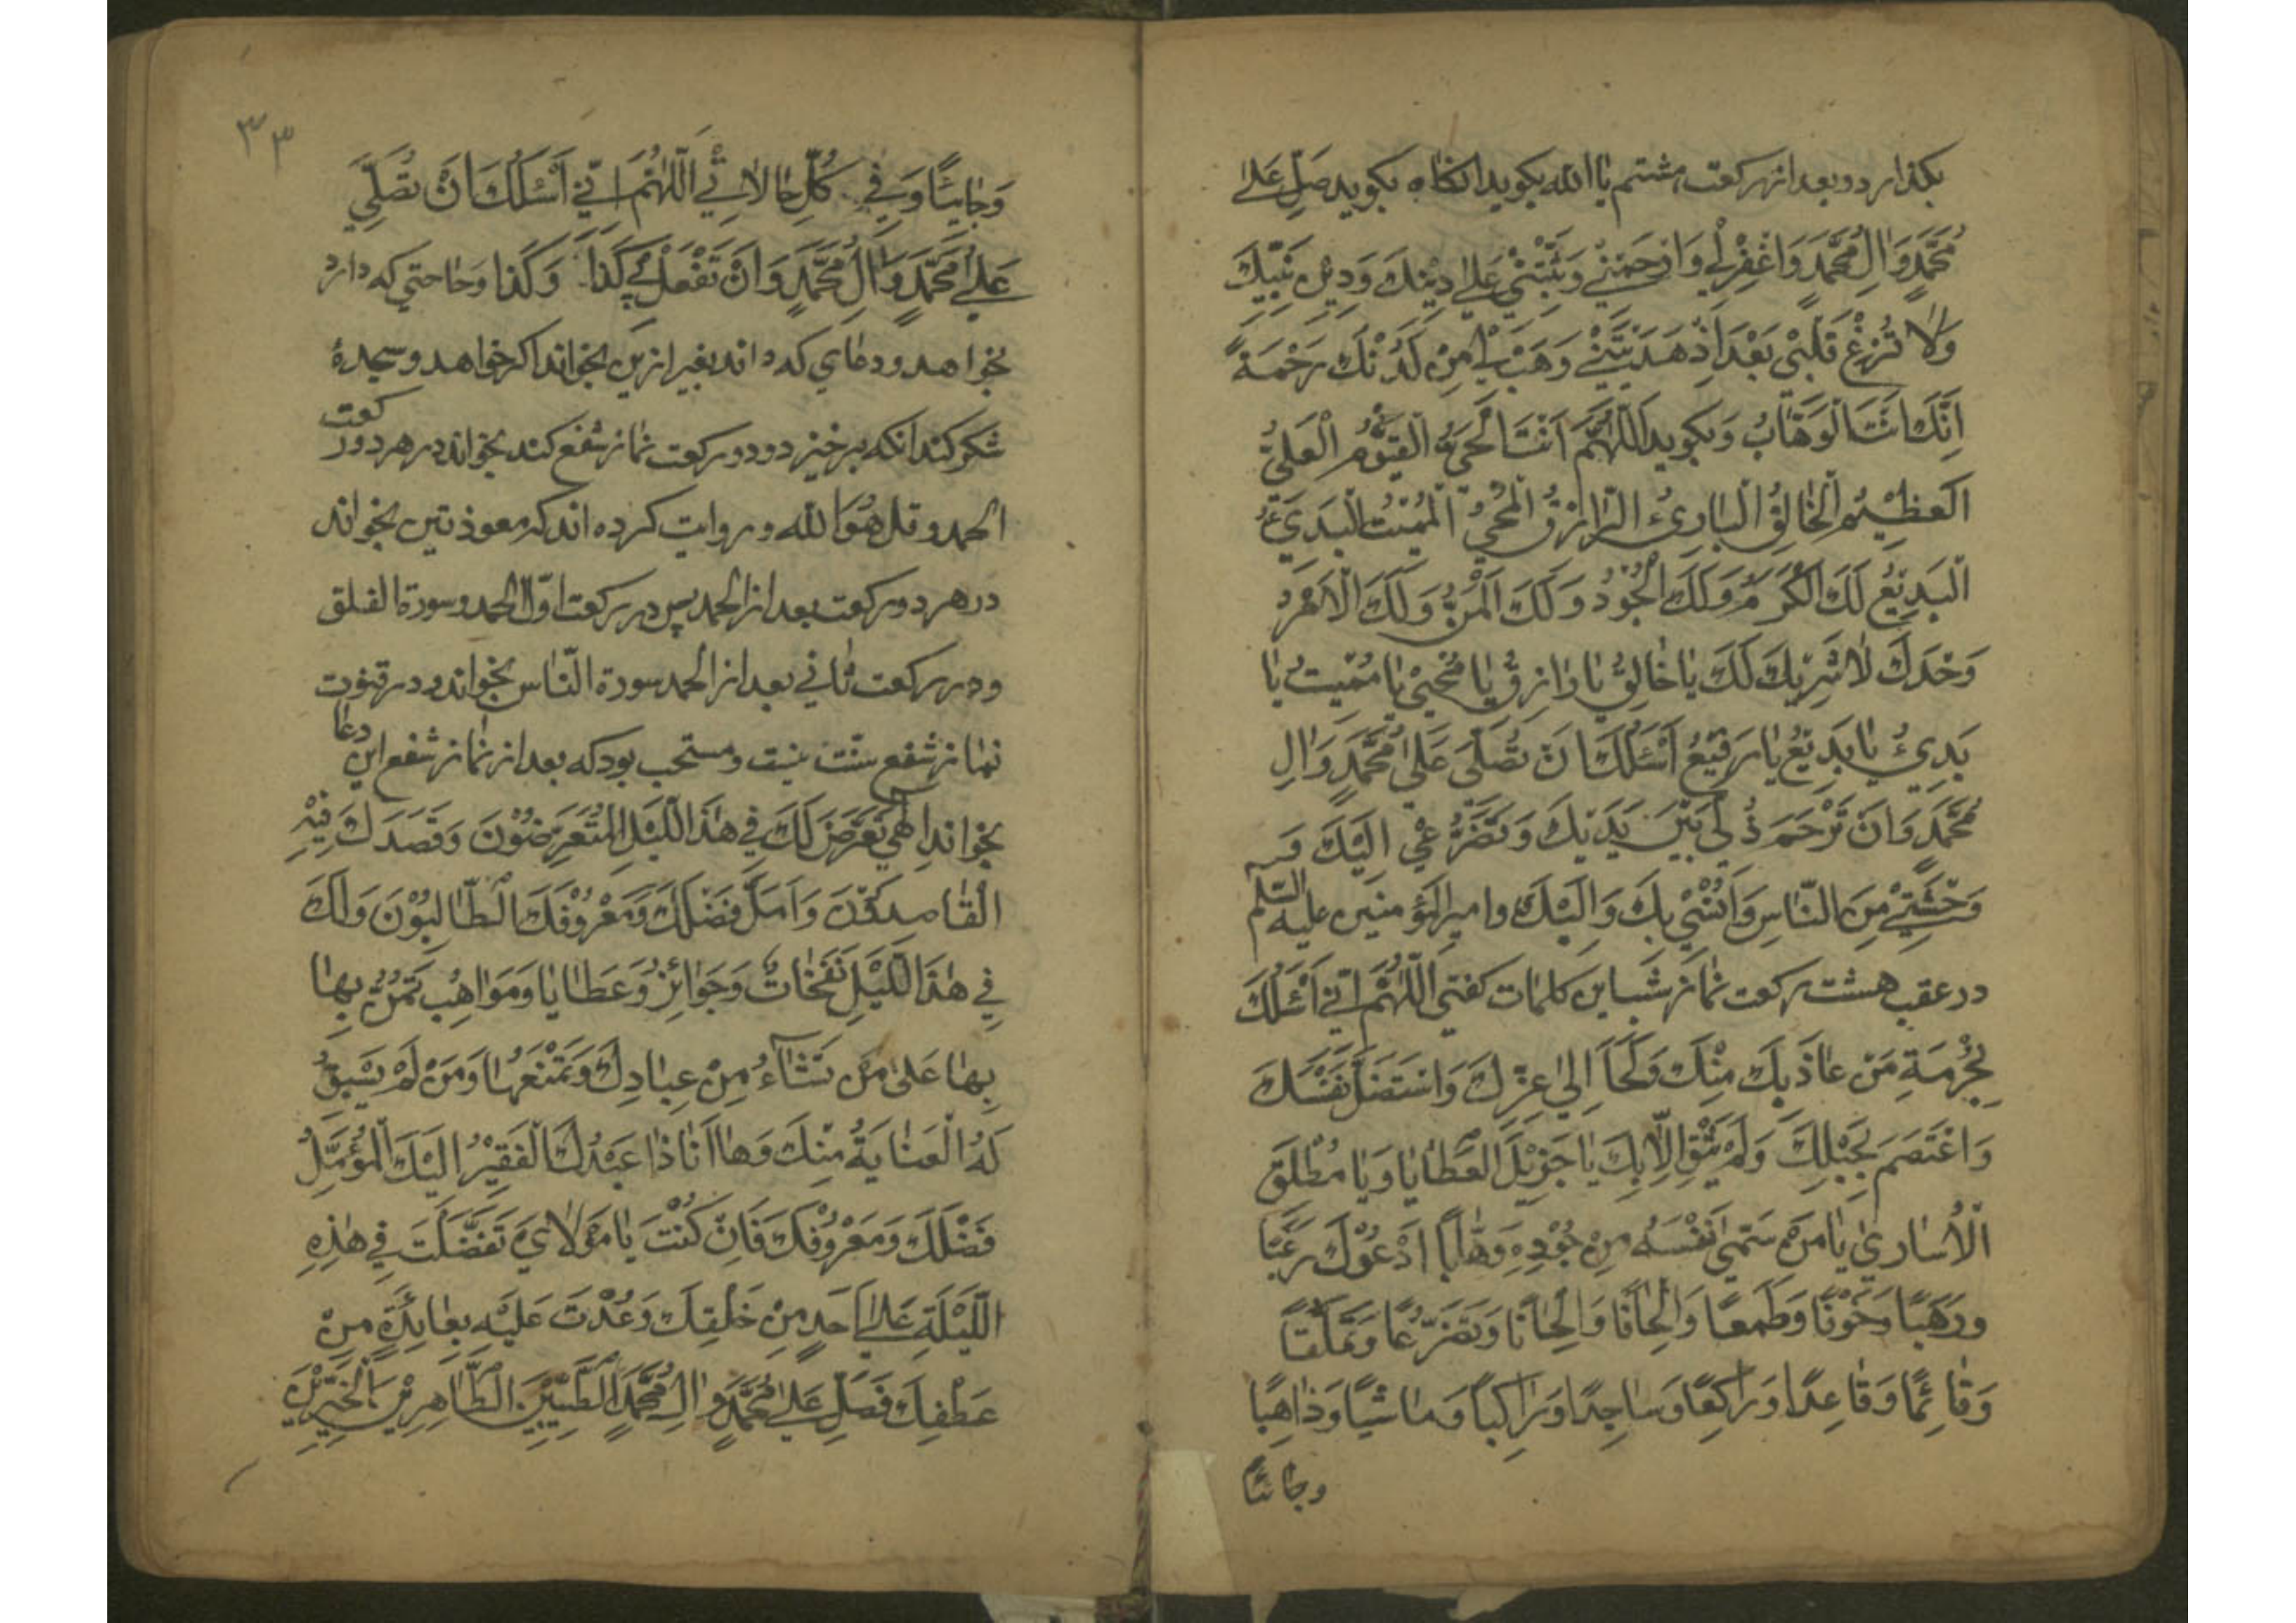 بکذارد و بعد از رکعت هشتم یا الله بکوید انکاه بکوید صَلِّ عَلیٰ
مُحَمَّدٍ وَاٰلِ مُحَمَّدٍ وَاغْفِرْلي وَارْحَمْنِي وَثَبِّتْنِي عَلیٰ دِیْنِكَ وَدِیْنِ نَبِیِّكَ
وَلَا تُزِغْ قَلْبِيْ بَعْدَ اِذْ هَدَیْتَنِيْ وَهَبْ لِي مِنْ لَدُنْكَ رَحْمَةً
اِنَّكَ اَنْتَ الْوَهَّابُ وَبکوید اَللّٰهُمَّ اَنْتَ الْحَيُّ الْقَیُّوْمُ الْعَلِيُّ
الْعَظِیْمُ الْخَالِقُ الْبَارِئُ الرَّازِقُ الْمُحْيِ الْمُمِیْتُ الْبَدِيْءُ
الْبَدِیْعُ لَكَ الْكَرَمُ وَلَكَ الْجُوْدُ وَلَكَ الْمَنُّ وَلَكَ الْاَمْرُ
وَحْدَكَ لَا شَرِیْكَ لَكَ یَا خَالِقُ یَا رَازِقُ یَا مُحْیِيْ یَا مُمِیْتُ یَا
بَدِيْءُ یَا بَدِیْعُ یَا رَفِیْعُ اَسْئَلُكَ اَنْ تُصَلِّيَ عَلیٰ مُحَمَّدٍ وَاٰلِ
مُحَمَّدٍ وَاَنْ تَرْحَمَ ذُلِّي بَیْنَ یَدَیْكَ وَتَضَرُّعِي اِلَیْكَ وَ
وَحْشَتِي مِنَ النَّاسِ وَاُنْسِيْ بِكَ وَاِلَیْكَ وامیر المؤمنین علیه السّلم
در عقب هشت رکعت نماز شب این کلمات کفتی اَللّٰهُمَّ اِنِّي اَسْئَلُكَ
بِحُرْمَةِ مَنْ عَاذَ بِكَ مِنْكَ وَلَجَاَ اِلیٰ عِزِّكَ وَاسْتَضَلَّ بِفَیْئِكَ
وَاعْتَصَمَ بِحَبْلِكَ وَلَمْ یَثِقْ اِلَّا بِكَ یَا جَزِیْلَ الْعَطَایَا وَیَا مُطْلِقَ
الْاُسَاریٰ یَا مَنْ سَمّیٰ نَفْسَهُ مِنْ جُوْدِهِ وَهَّابًا اَدْعُوْكَ رَغَبًا
وَرَهَبًا وَخَوْفًا وَطَمَعًا وَاِلْحَافًا وَاِلْحَاحًا وَتَضَرُّعًا وَتَمَلُّقًا
وَقَائِمًا وَقَاعِدًا وَرَاكِعًا وَسَاجِدًا وَرَاكِبًا وَمَاشِیًا وَذَاهِبًا
وجائیًا
٣٣
وَجَائِیًا وَفِي كُلِّ حَالَاتِي اَللّٰهُمَّ اِنِّي اَسْئَلُكَ اَنْ تُصَلِّيَ
عَلیٰ مُحَمَّدٍ وَاٰلِ مُحَمَّدٍ وَاَنْ تَفْعَلَ بِي كَذَا وَكَذَا وحاجتی که دارد
بخواهد ودعای که داند بغیر ازین بخواند اکر خواهد وسجدهٔ
شکر کند انکه برخیزد و دو رکعت نماز شفع کند بخواند در هر دو رکعت
الحمد وقل هُوَ الله و روایت کرده اند که معوذتین بخواند
در هر دو رکعت بعد از الحمد پس در رکعت اوّل الحمد وسورة الفلق
ودر رکعت ثانی بعد از الحمد سورة النّاس بخواند ودر قنوت
نماز شفع سنّت نیست ومستحب بود که بعد از نماز شفع این دعا
بخواند اِلٰهِي تَعَرَّضَ لَكَ فِي هٰذَا اللَّیْلِ الْمُتَعَرِّضُوْنَ وَقَصَدَكَ فِیْهِ
الْقَاصِدُوْنَ وَاَمَّلَ فَضْلَكَ وَمَعْرُوْفَكَ الطَّالِبُوْنَ وَلَكَ
فِي هٰذَا اللَّیْلِ نَفَحَاتٌ وَجَوَائِزُ وَعَطَایَا وَمَوَاهِبُ تَمُنُّ بِهَا
بِهَا عَلیٰ مَنْ تَشَآءُ مِنْ عِبَادِكَ وَتَمْنَعُهَا وَمَنْ لَمْ یَسْبِقْ
لَهُ الْعِنَایَةُ مِنْكَ وَهَا اَنَا ذَا عَبْدُكَ الْفَقِیْرُ اِلَیْكَ الْمُؤَمِّلُ
فَضْلَكَ وَمَعْرُوْفَكَ فَاِنْ كُنْتَ یَا مَوْلَايَ تَفَضَّلْتَ فِي هٰذِهِ
اللَّیْلَةِ عَلیٰ اَحَدٍ مِنْ خَلْقِكَ وَعُدْتَ عَلَیْهِ بِعَائِدَةٍ مِنْ
عَطْفِكَ فَصَلِّ عَلیٰ مُحَمَّدٍ وَاٰلِ مُحَمَّدٍ الطَّیِّبِیْنَ الطَّاهِرِیْنَ الْخَیِّرِیْنَ